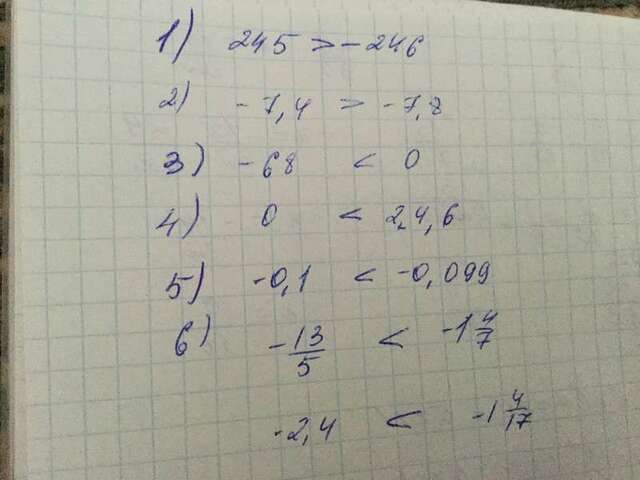 1) 245 > -246
2) -7,4 > -7,8
3) -68 < 0
4) 0 < 2,4,6
5) -0,1 < -0,099
6) -13/5 < -1 4/7
-2,4 < -1 4/17